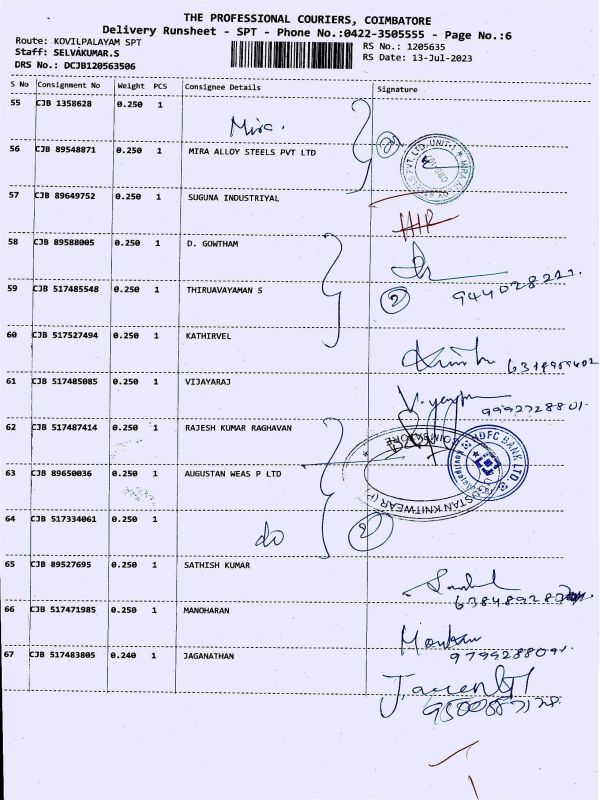 THE PROFESSIONAL COURIERS, COIMBATORE
Delivery Runsheet - SPT - Phone No.:0422-3505555 - Page No.:6
Route: KOVILPALAYAM SPT
Staff: SELVAKUMAR.S
DRS No.: DCJB120563506
RS No.: 1205635
RS Date: 13-Jul-2023
S No Consignment No Weight PCS Consignee Details Signature
55 CJB 1358628 0.250 1
Mira.
56 CJB 89548871 0.250 1 MIRA ALLOY STEELS PVT LTD
57 CJB 89649752 0.250 1 SUGUNA INDUSTRIYAL
58 CJB 89588005 0.250 1 D. GOWTHAM
59 CJB 517485548 0.250 1 THIRUAVAYAMAN S
2
60 CJB 517527494 0.250 1 KATHIRVEL
61 CJB 517485085 0.250 1 VIJAYARAJ
9992728801
62 CJB 517487414 0.250 1 RAJESH KUMAR RAGHAVAN
HDFC BANK LTD.
63 CJB 89650036 0.250 1 AUGUSTAN WEAS P LTD
COIMBATORE
KNITWEAR (P)
64 CJB 517334061 0.250 1
do
2
65 CJB 89527695 0.250 1 SATHISH KUMAR
66 CJB 517471985 0.250 1 MANOHARAN
9799288091.
67 CJB 517483805 0.240 1 JAGANATHAN